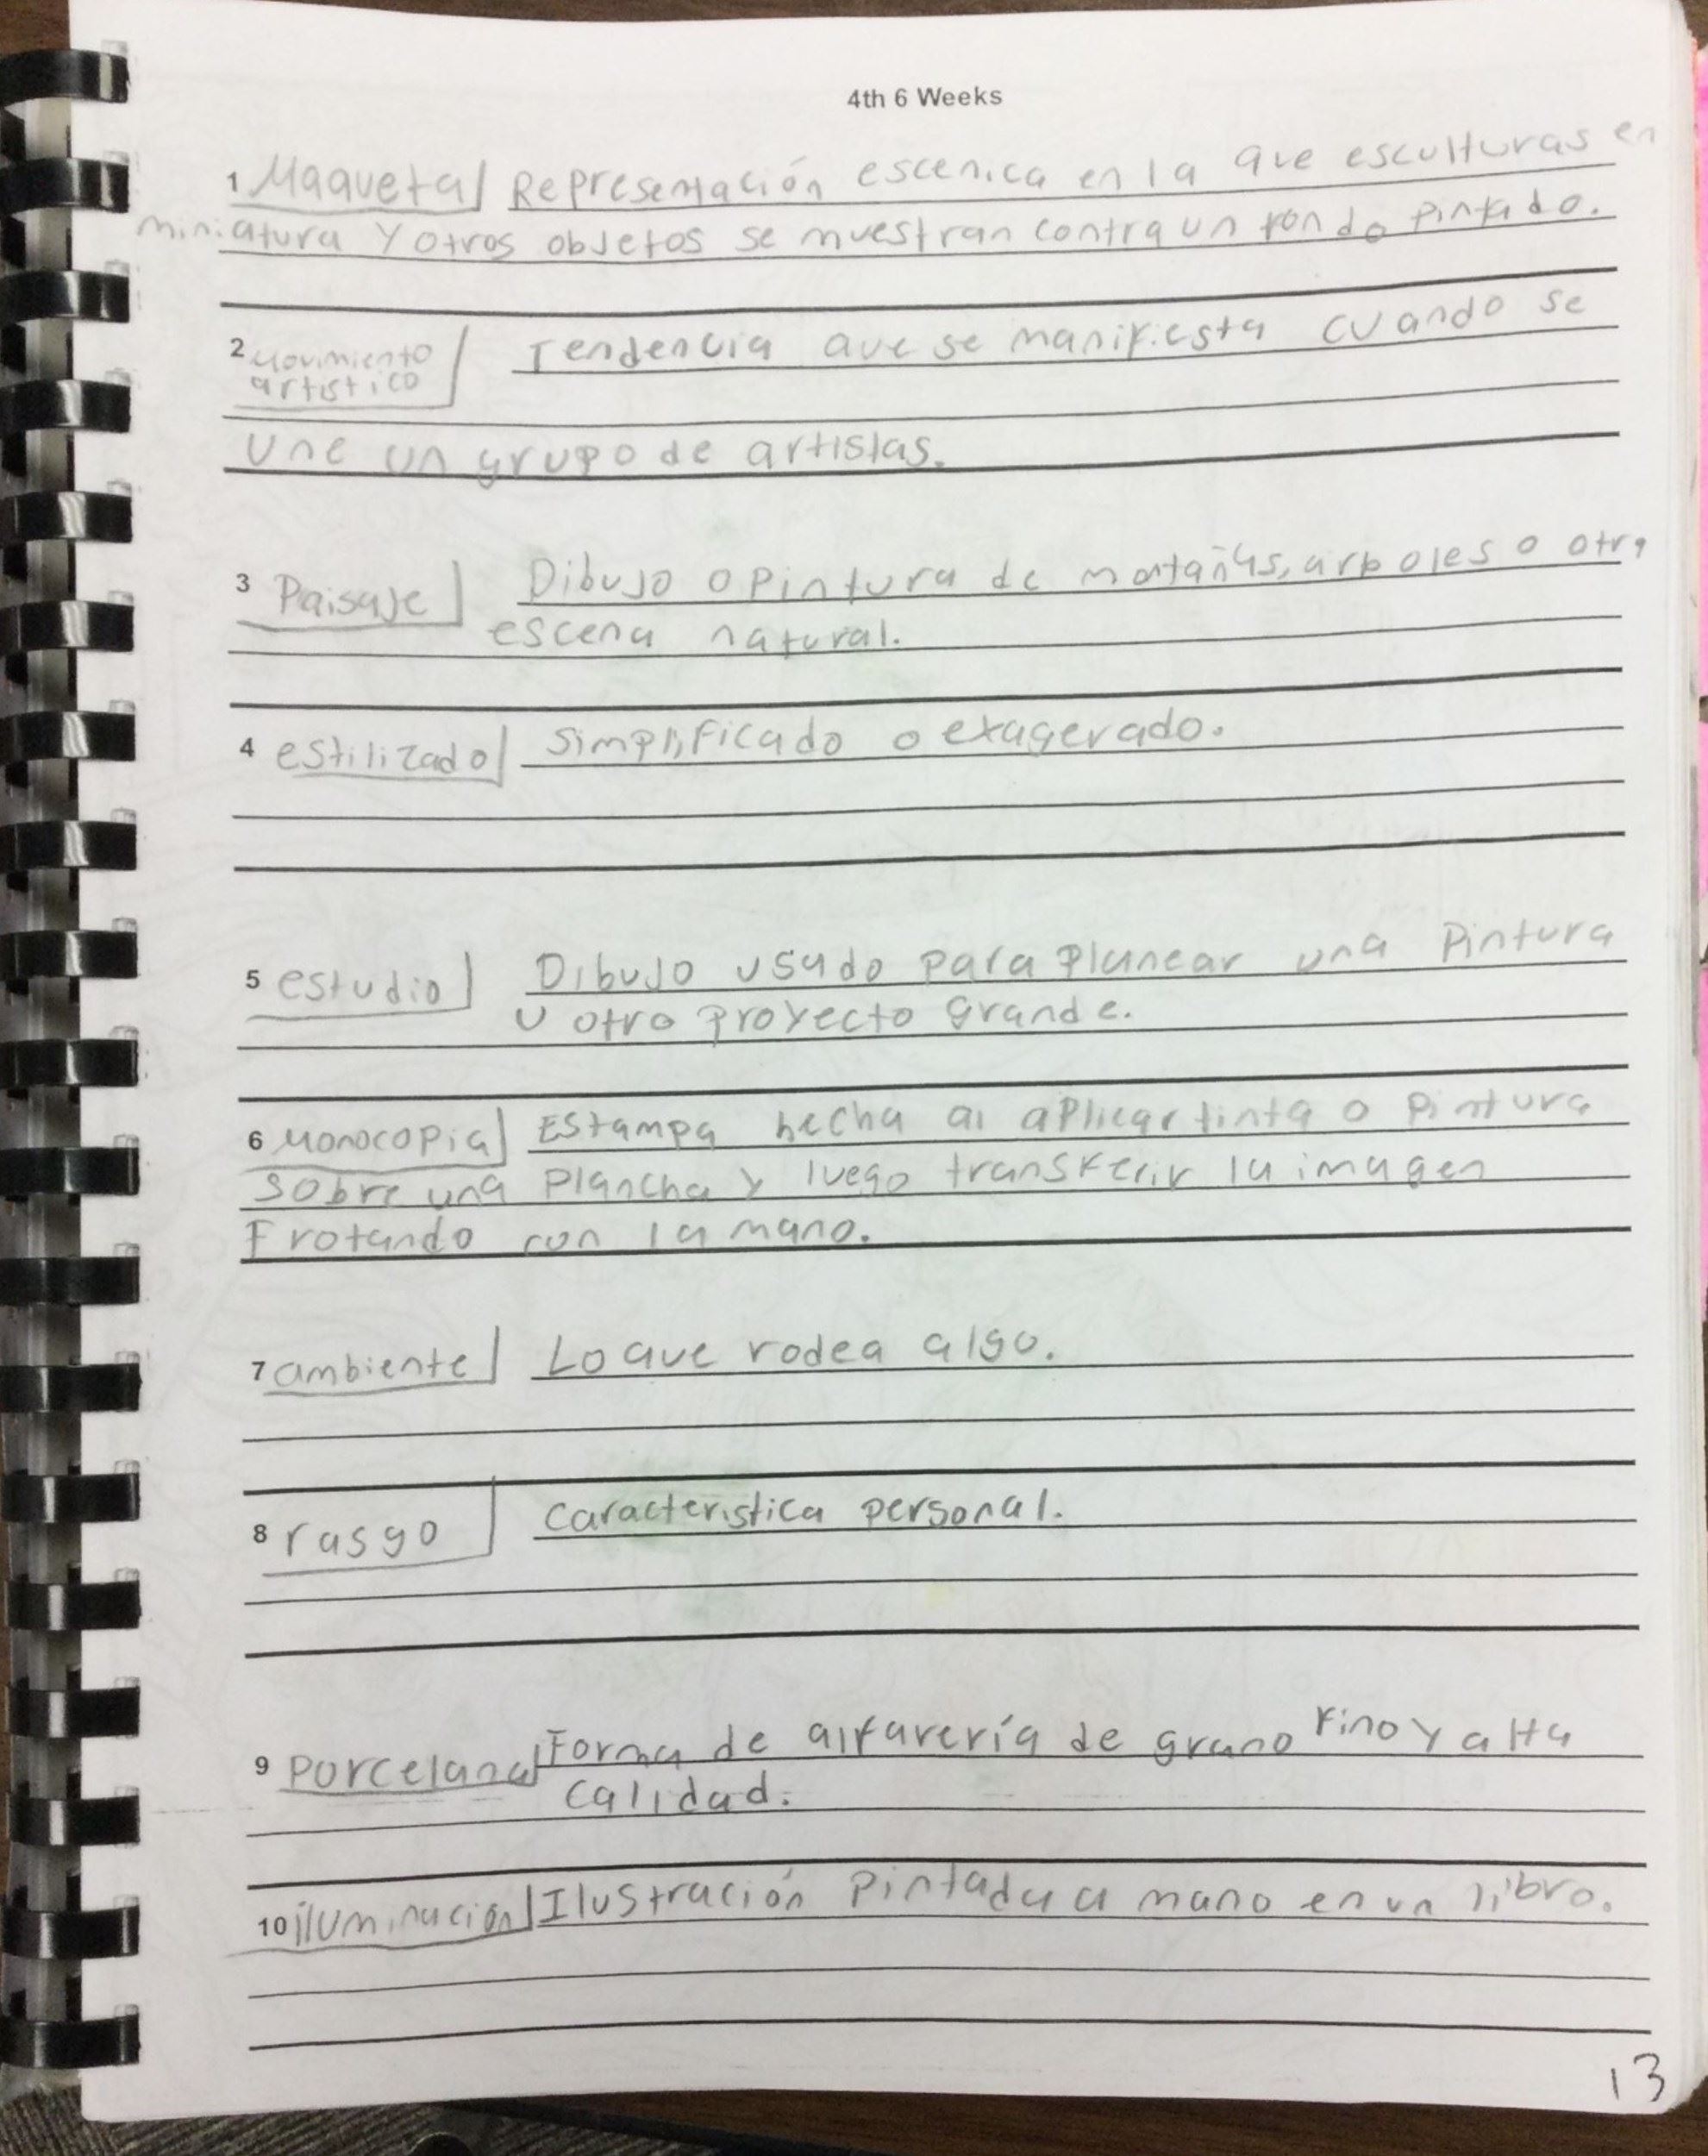 4th 6 Weeks
1 Maqueta Representación escenica en la que esculturas en
miniatura y otros objetos se muestran contra un fondo pintado.
2 Movimiento
artistico
Tendencia que se manifiesta cuando se
une un grupo de artistas.
3 Paisaje Dibujo o pintura de montañas, arboles o otra
escena natural.
4 estilizado simplificado o exagerado.
5 estudio Dibujo usado para planear una pintura
u otro proyecto grande.
6 Monocopia Estampa hecha al aplicar tinta o pintura
sobre una plancha y luego transferir la imagen
Frotando con la mano.
7 ambiente Lo que rodea algo.
8 rasgo caracteristica personal.
9 porcelana Forma de alfarería de grano fino y alta
calidad.
10 iluminacion Ilustración pintada a mano en un libro.
13